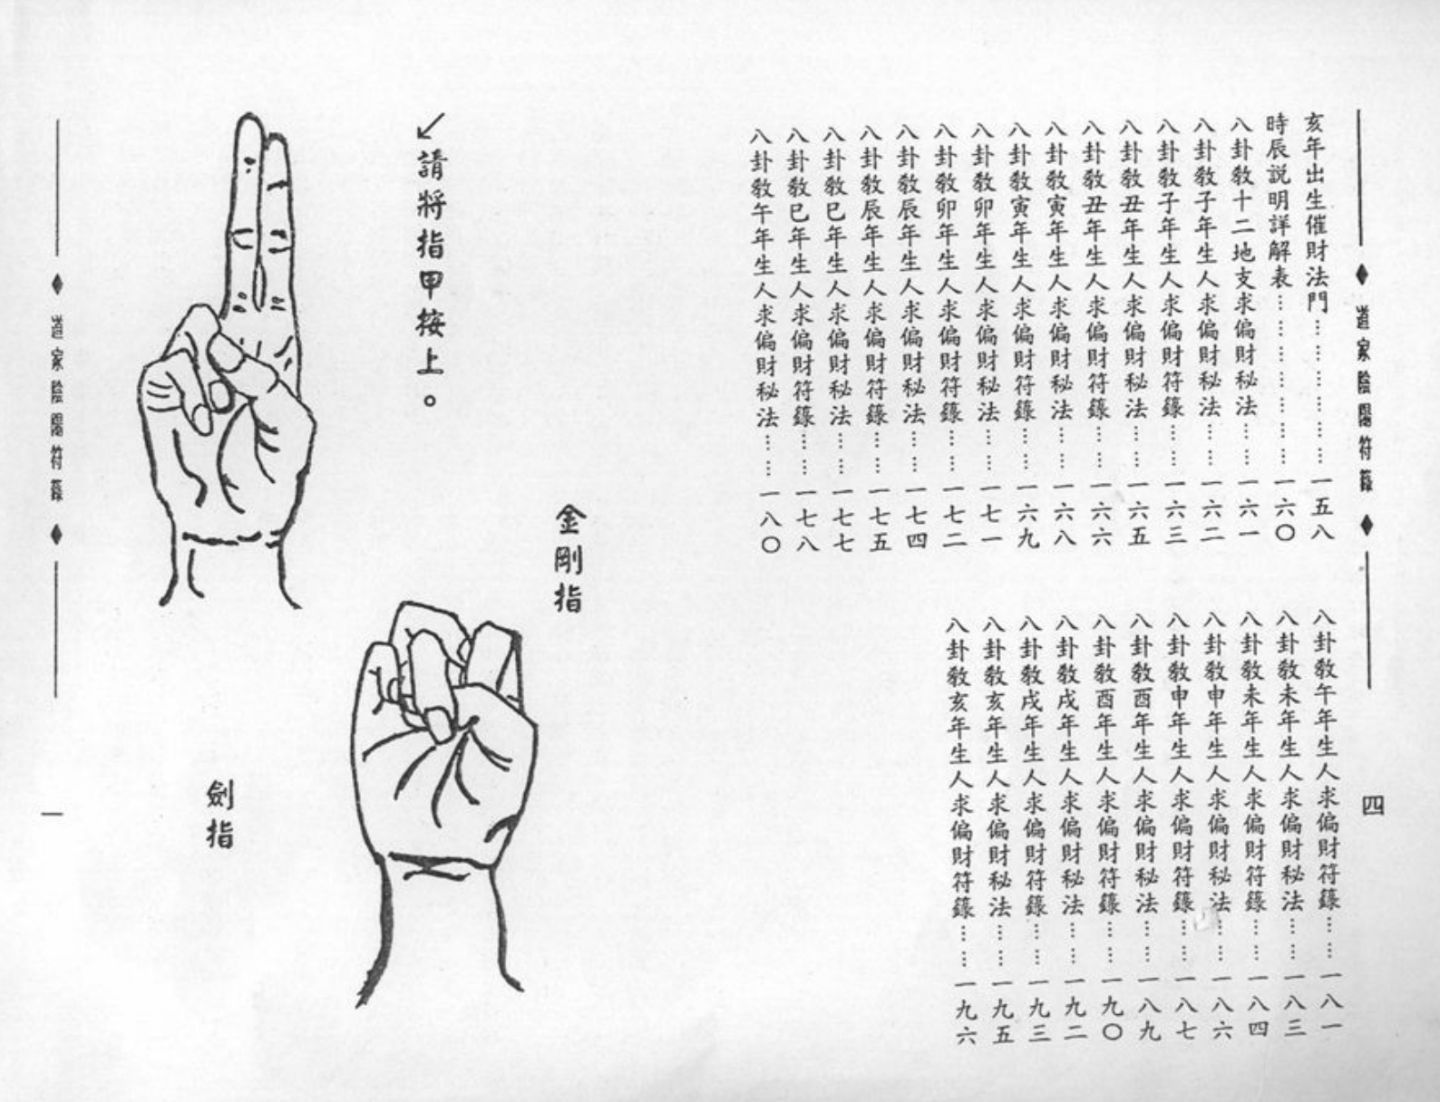 ◆ 道家陰陽符籙 ◆
四
亥年出生催財法門……………一五八
時辰説明詳解表……………一六〇
八卦教十二地支求偏財秘法……一六一
八卦教子年生人求偏財秘法……一六二
八卦教子年生人求偏財符籙……一六三
八卦教丑年生人求偏財秘法……一六五
八卦教丑年生人求偏財符籙……一六六
八卦教寅年生人求偏財秘法……一六八
八卦教寅年生人求偏財符籙……一六九
八卦教卯年生人求偏財秘法……一七一
八卦教卯年生人求偏財符籙……一七二
八卦教辰年生人求偏財秘法……一七四
八卦教辰年生人求偏財符籙……一七五
八卦教巳年生人求偏財秘法……一七七
八卦教巳年生人求偏財符籙……一七八
八卦教午年生人求偏財秘法……一八〇
八卦教午年生人求偏財符籙……一八一
八卦教未年生人求偏財秘法……一八三
八卦教未年生人求偏財符籙……一八四
八卦教申年生人求偏財秘法……一八六
八卦教申年生人求偏財符籙……一八七
八卦教酉年生人求偏財秘法……一八九
八卦教酉年生人求偏財符籙……一九〇
八卦教戌年生人求偏財秘法……一九二
八卦教戌年生人求偏財符籙……一九三
八卦教亥年生人求偏財秘法……一九五
八卦教亥年生人求偏財符籙……一九六
金剛指
↙請將指甲按上。
劍指
◆ 道家陰陽符籙 ◆
一